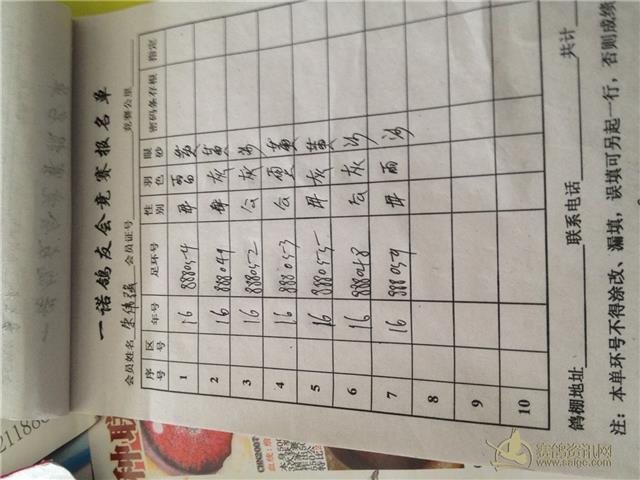 一诺鸽友会竞赛报名单
会员姓名 会员证号 竞赛公里
序号 区号 年号 足环号 性别 羽色 眼砂 密码条存根 指定
1 16 888054 雨 黄
2 16 888049 灰 黄
3 16 888052 灰 沙
4 16 888053 雨 黄
5 16 888055 灰 黄
6 16 888048 灰 沙
7 16 888059 雨 沙
8
9
10
鸽棚地址 联系电话 共计
注：本单环号不得涂改、漏填，误填可另起一行，否则成绩
CHN2007
赛鸽资讯网
www.saige.com